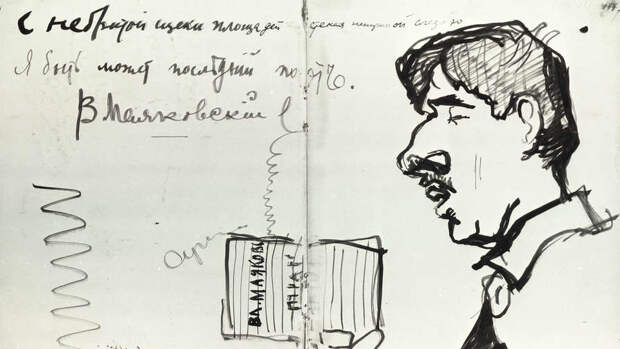 С небритой щеки площадей стекая ненужной слезою
Я быть может последний поэтъ.
В Маяковскiй
ВЛ. МАЯКОВС